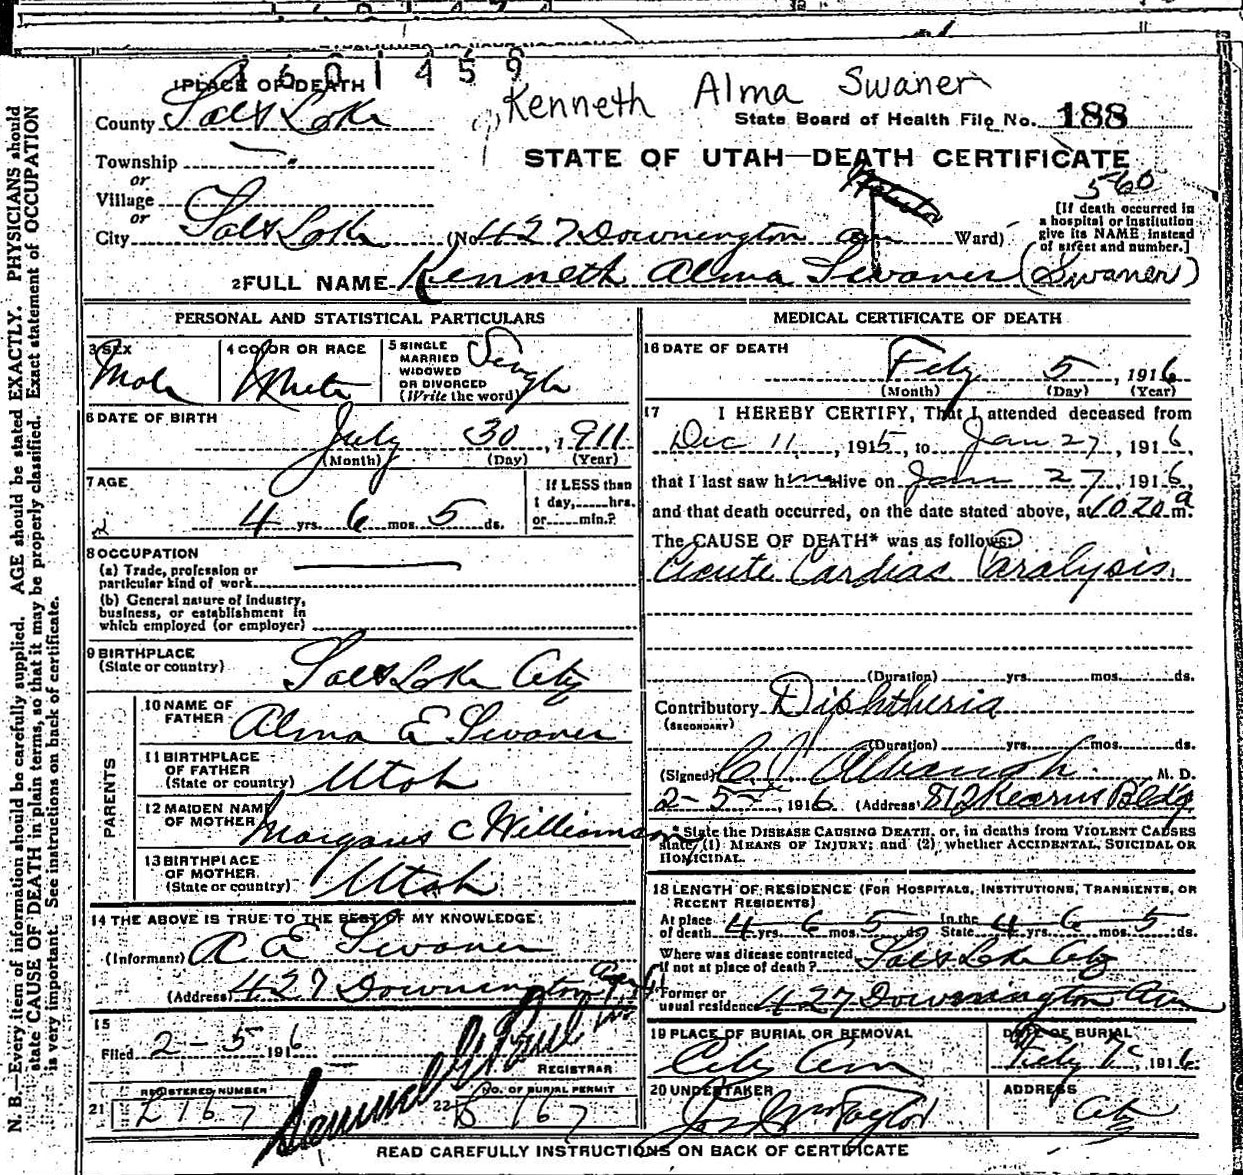 1601459
1 PLACE OF DEATH
Kenneth Alma Swaner
County Salt Lake
State Board of Health File No. 188
Township
or
STATE OF UTAH—DEATH CERTIFICATE
Village
or
560
City Salt Lake (No. 427 Downington ave Ward)
[If death occurred in
a hospital or institution
give its NAME instead
of street and number.]
2 FULL NAME Kenneth Alma Swaner (Swaner)
PERSONAL AND STATISTICAL PARTICULARS
3 SEX
Male
4 COLOR OR RACE
White
5 SINGLE
MARRIED
WIDOWED
OR DIVORCED
(Write the word)
Single
6 DATE OF BIRTH
July 30, 1911
(Month) (Day) (Year)
7 AGE
4 yrs. 6 mos. 5 ds.
If LESS than
1 day, hrs.
or min.?
8 OCCUPATION
(a) Trade, profession or
particular kind of work
(b) General nature of industry,
business, or establishment in
which employed (or employer)
9 BIRTHPLACE
(State or country) Salt Lake City
PARENTS
10 NAME OF
FATHER Alma E Swaner
11 BIRTHPLACE
OF FATHER
(State or country) Utah
12 MAIDEN NAME
OF MOTHER C Williamson
13 BIRTHPLACE
OF MOTHER
(State or country) Utah
14 THE ABOVE IS TRUE TO THE BEST OF MY KNOWLEDGE
(Informant) A E Swaner
(Address) 427 Downington Ave
15
Filed 2-5 1916
Samuel G Paul
REGISTRAR
21 REGISTERED NUMBER
167
22 NO. OF BURIAL PERMIT
B 167
MEDICAL CERTIFICATE OF DEATH
16 DATE OF DEATH
Feby 5, 1916
(Month) (Day) (Year)
17 I HEREBY CERTIFY, That I attended deceased from
Dec 11, 1915, to Jan 27, 1916,
that I last saw him alive on Jan 27, 1916,
and that death occurred, on the date stated above, at 10 20 a m.
The CAUSE OF DEATH* was as follows:
Acute Cardiac Paralysis
(Duration) yrs. mos. ds.
Contributory Diphtheria
(SECONDARY)
(Duration) yrs. mos. ds.
(Signed) Albaugh M. D.
2-5, 1916 (Address) 812 Kearns Bldg
*State the DISEASE CAUSING DEATH, or, in deaths from VIOLENT CAUSES
state (1) MEANS OF INJURY; and (2) whether ACCIDENTAL, SUICIDAL OR
HOMICIDAL.
18 LENGTH OF RESIDENCE (FOR HOSPITALS, INSTITUTIONS, TRANSIENTS, OR
RECENT RESIDENTS)
At place
of death 4 yrs. 6 mos. 5 ds. In the
State 4 yrs. 6 mos. 5 ds.
Where was disease contracted
if not at place of death? Salt Lake City
Former or
usual residence 427 Downington Ave
19 PLACE OF BURIAL OR REMOVAL
City Cem
DATE OF BURIAL
Feby 7, 1916
20 UNDERTAKER
Taylor
ADDRESS
City
READ CAREFULLY INSTRUCTIONS ON BACK OF CERTIFICATE
N. B.—Every item of information should be carefully supplied. AGE should be stated EXACTLY. PHYSICIANS should
state CAUSE OF DEATH in plain terms, so that it may be properly classified. Exact statement of OCCUPATION
is very important. See instructions on back of certificate.